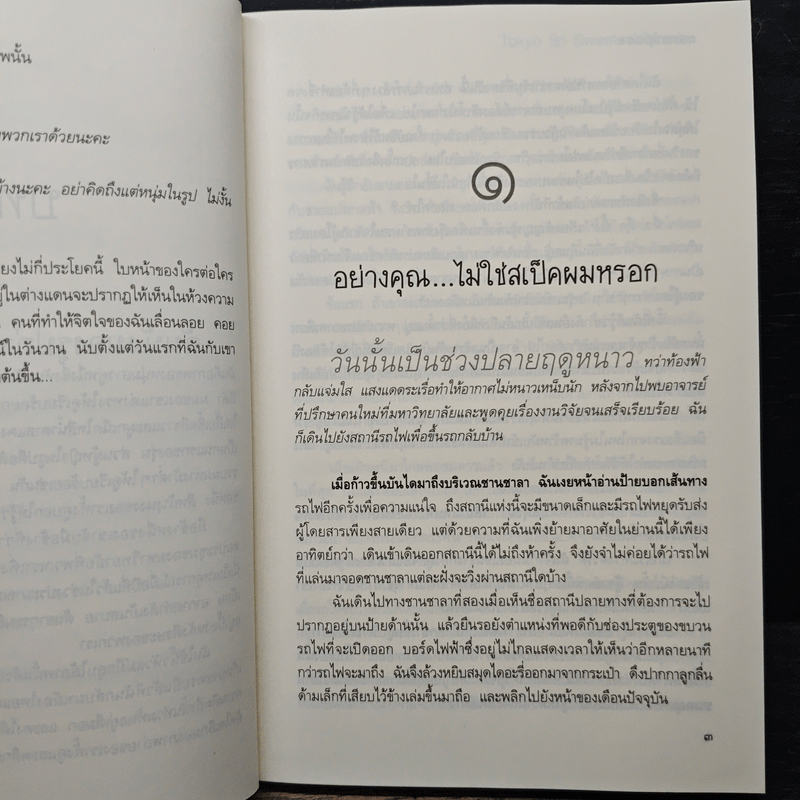 พนั้น
พวกเราด้วยนะคะ
ข้างนะคะ อย่าคิดถึงแต่หนุ่มในรูป ไม่งั้น
ยงไม่กี่ประโยคนี้ ใบหน้าของใครต่อใคร
ยู่ในต่างแดนจะปรากฏให้เห็นในห้วงความ
คนที่ทำให้จิตใจของฉันเลื่อนลอย คอย
นีในวันวาน นับตั้งแต่วันแรกที่ฉันกับเขา
ต้นขึ้น...
๑
อย่างคุณ...ไม่ใช่สเป็คผมหรอก
วันนั้นเป็นช่วงปลายฤดูหนาว ทว่าท้องฟ้า
กลับแจ่มใส แสงแดดระเรื่อทำให้อากาศไม่หนาวเหน็บนัก หลังจากไปพบอาจารย์
ที่ปรึกษาคนใหม่ที่มหาวิทยาลัยและพูดคุยเรื่องงานวิจัยจนเสร็จเรียบร้อย ฉัน
ก็เดินไปยังสถานีรถไฟเพื่อขึ้นรถกลับบ้าน
เมื่อก้าวขึ้นบันไดมาถึงบริเวณชานชาลา ฉันเงยหน้าอ่านป้ายบอกเส้นทาง
รถไฟอีกครั้งเพื่อความแน่ใจ ถึงสถานีแห่งนี้จะมีขนาดเล็กและมีรถไฟหยุดรับส่ง
ผู้โดยสารเพียงสายเดียว แต่ด้วยความที่ฉันเพิ่งย้ายมาอาศัยในย่านนี้ได้เพียง
อาทิตย์กว่า เดินเข้าเดินออกสถานีนี้ได้ไม่ถึงห้าครั้ง จึงยังจำไม่ค่อยได้ว่ารถไฟ
ที่แล่นมาจอดชานชาลาแต่ละฝั่งจะวิ่งผ่านสถานีใดบ้าง
ฉันเดินไปทางชานชาลาที่สองเมื่อเห็นชื่อสถานีปลายทางที่ต้องการจะไป
ปรากฏอยู่บนป้ายด้านนั้น แล้วยืนรอยังตำแหน่งที่พอดีกับช่องประตูของขบวน
รถไฟที่จะเปิดออก บอร์ดไฟฟ้าซึ่งอยู่ไม่ไกลแสดงเวลาให้เห็นว่าอีกหลายนาที
กว่ารถไฟจะมาถึง ฉันจึงล้วงหยิบสมุดไดอะรี่ออกมาจากกระเป๋า ดึงปากกาลูกลื่น
ด้ามเล็กที่เสียบไว้ข้างเล่มขึ้นมาถือ และพลิกไปยังหน้าของเดือนปัจจุบัน
๓